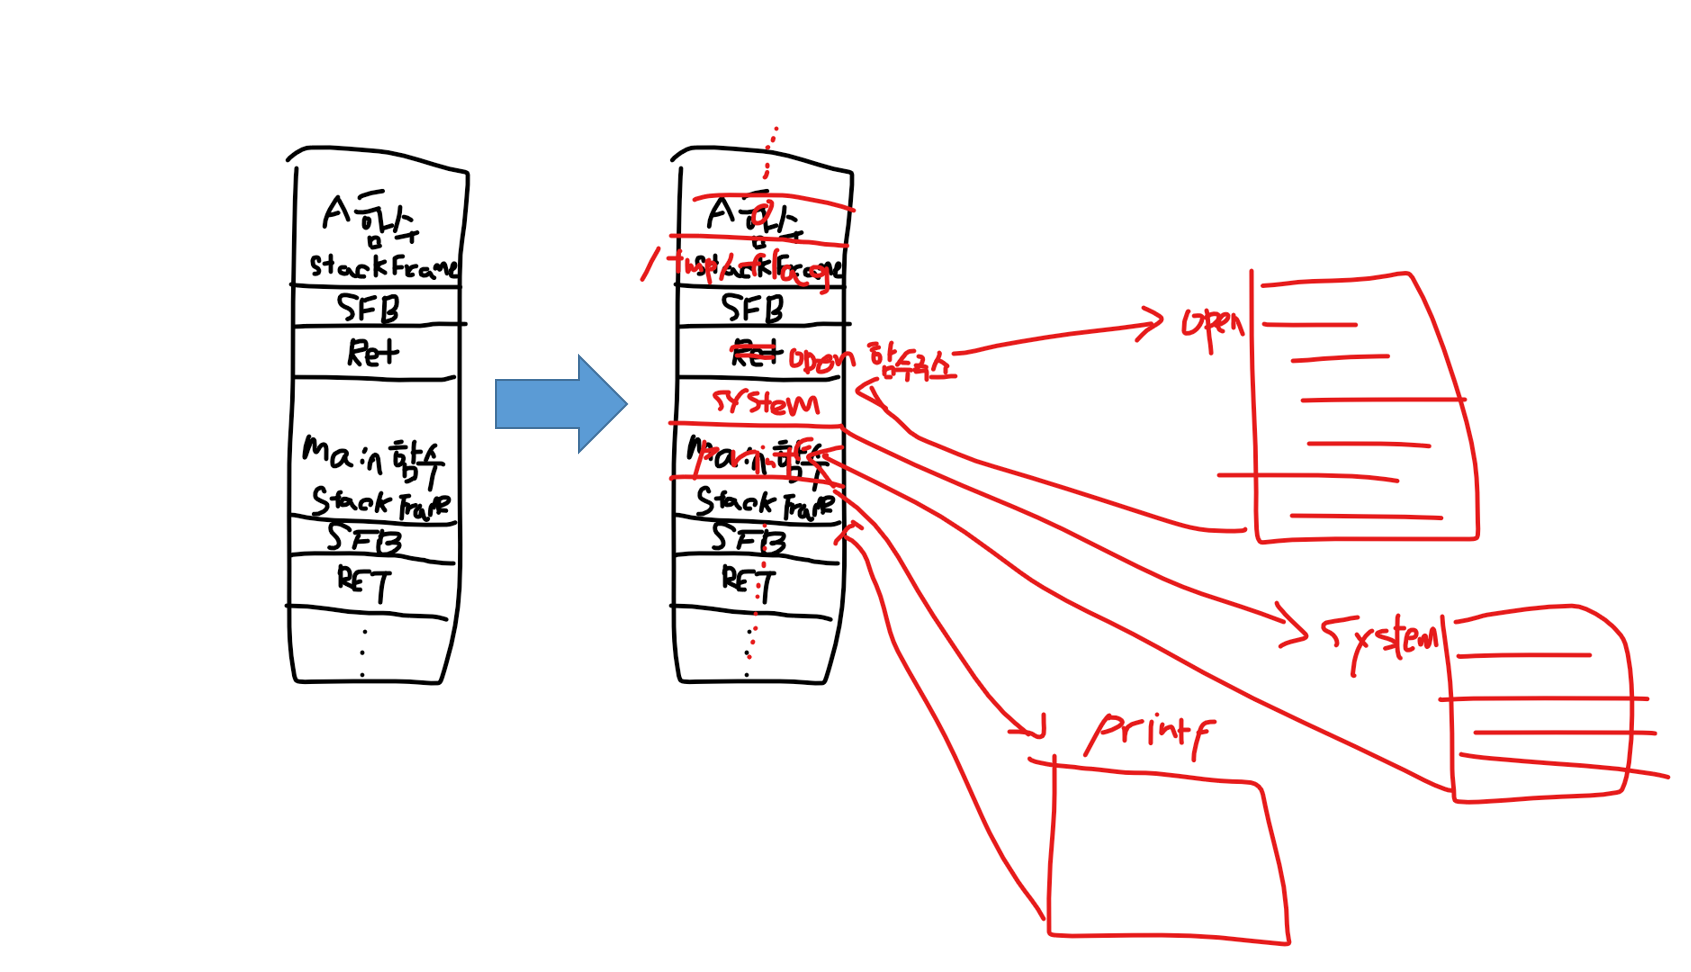 A함수
Stack Frame
SFB
Ret
Main 함수
Stack Frame
SFB
RET
A함수
0
Stack Frame
/tmp/flag
SFB
Ret
open 함수주소
system
Main 함수
printf
Stack Frame
SFB
RET
open
system
printf